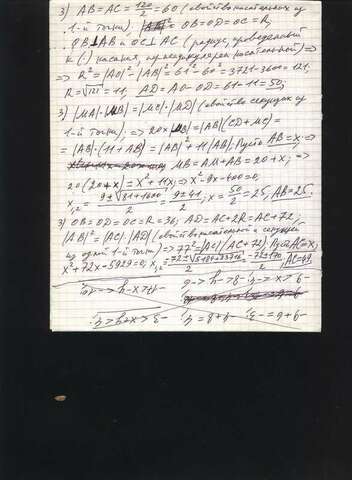 3) AB=AC=120/2=60 (свойство касательных из
1-й точки). OB=OD=OC=R,
OB⊥AB и OC⊥AC (радиус, проведенный
к (·) касания, перпендикулярен касательной)⇒
⇒ R²=|AO|²-|AB|²=61²-60²=3721-3600=121,
R=√121=11, AD=AO-OD=61-11=50;
3) |MA|·|MB|=|MC|·|MD| (свойство секущих из
1-й точки), ⇒ 20×|MB|=|AB|(CD+MC)=
=|AB|·(11+AB)=|AB|²+11|AB|. Пусть AB=x,⇒
MB=AM+AB=20+x; ⇒
20(20+x)=x²+11x;⇒ x²-9x-400=0,
x₁,₂=(9±√81+1600)/2=(9±41)/2; x=50/2=25, AB=25.
3) OB=OD=OC=R=36; AD=AC+2R=AC+72,
|AB|²=|AC|·|AD| (свойство касательной и секущей
из одной 1-й точки)⇒77²=|AC|(AC+72); Пусть AC=x,
x²+72x-5929=0; x₁,₂=(-72±√5184+23716)/2=(-72+170)/2, AC=49.